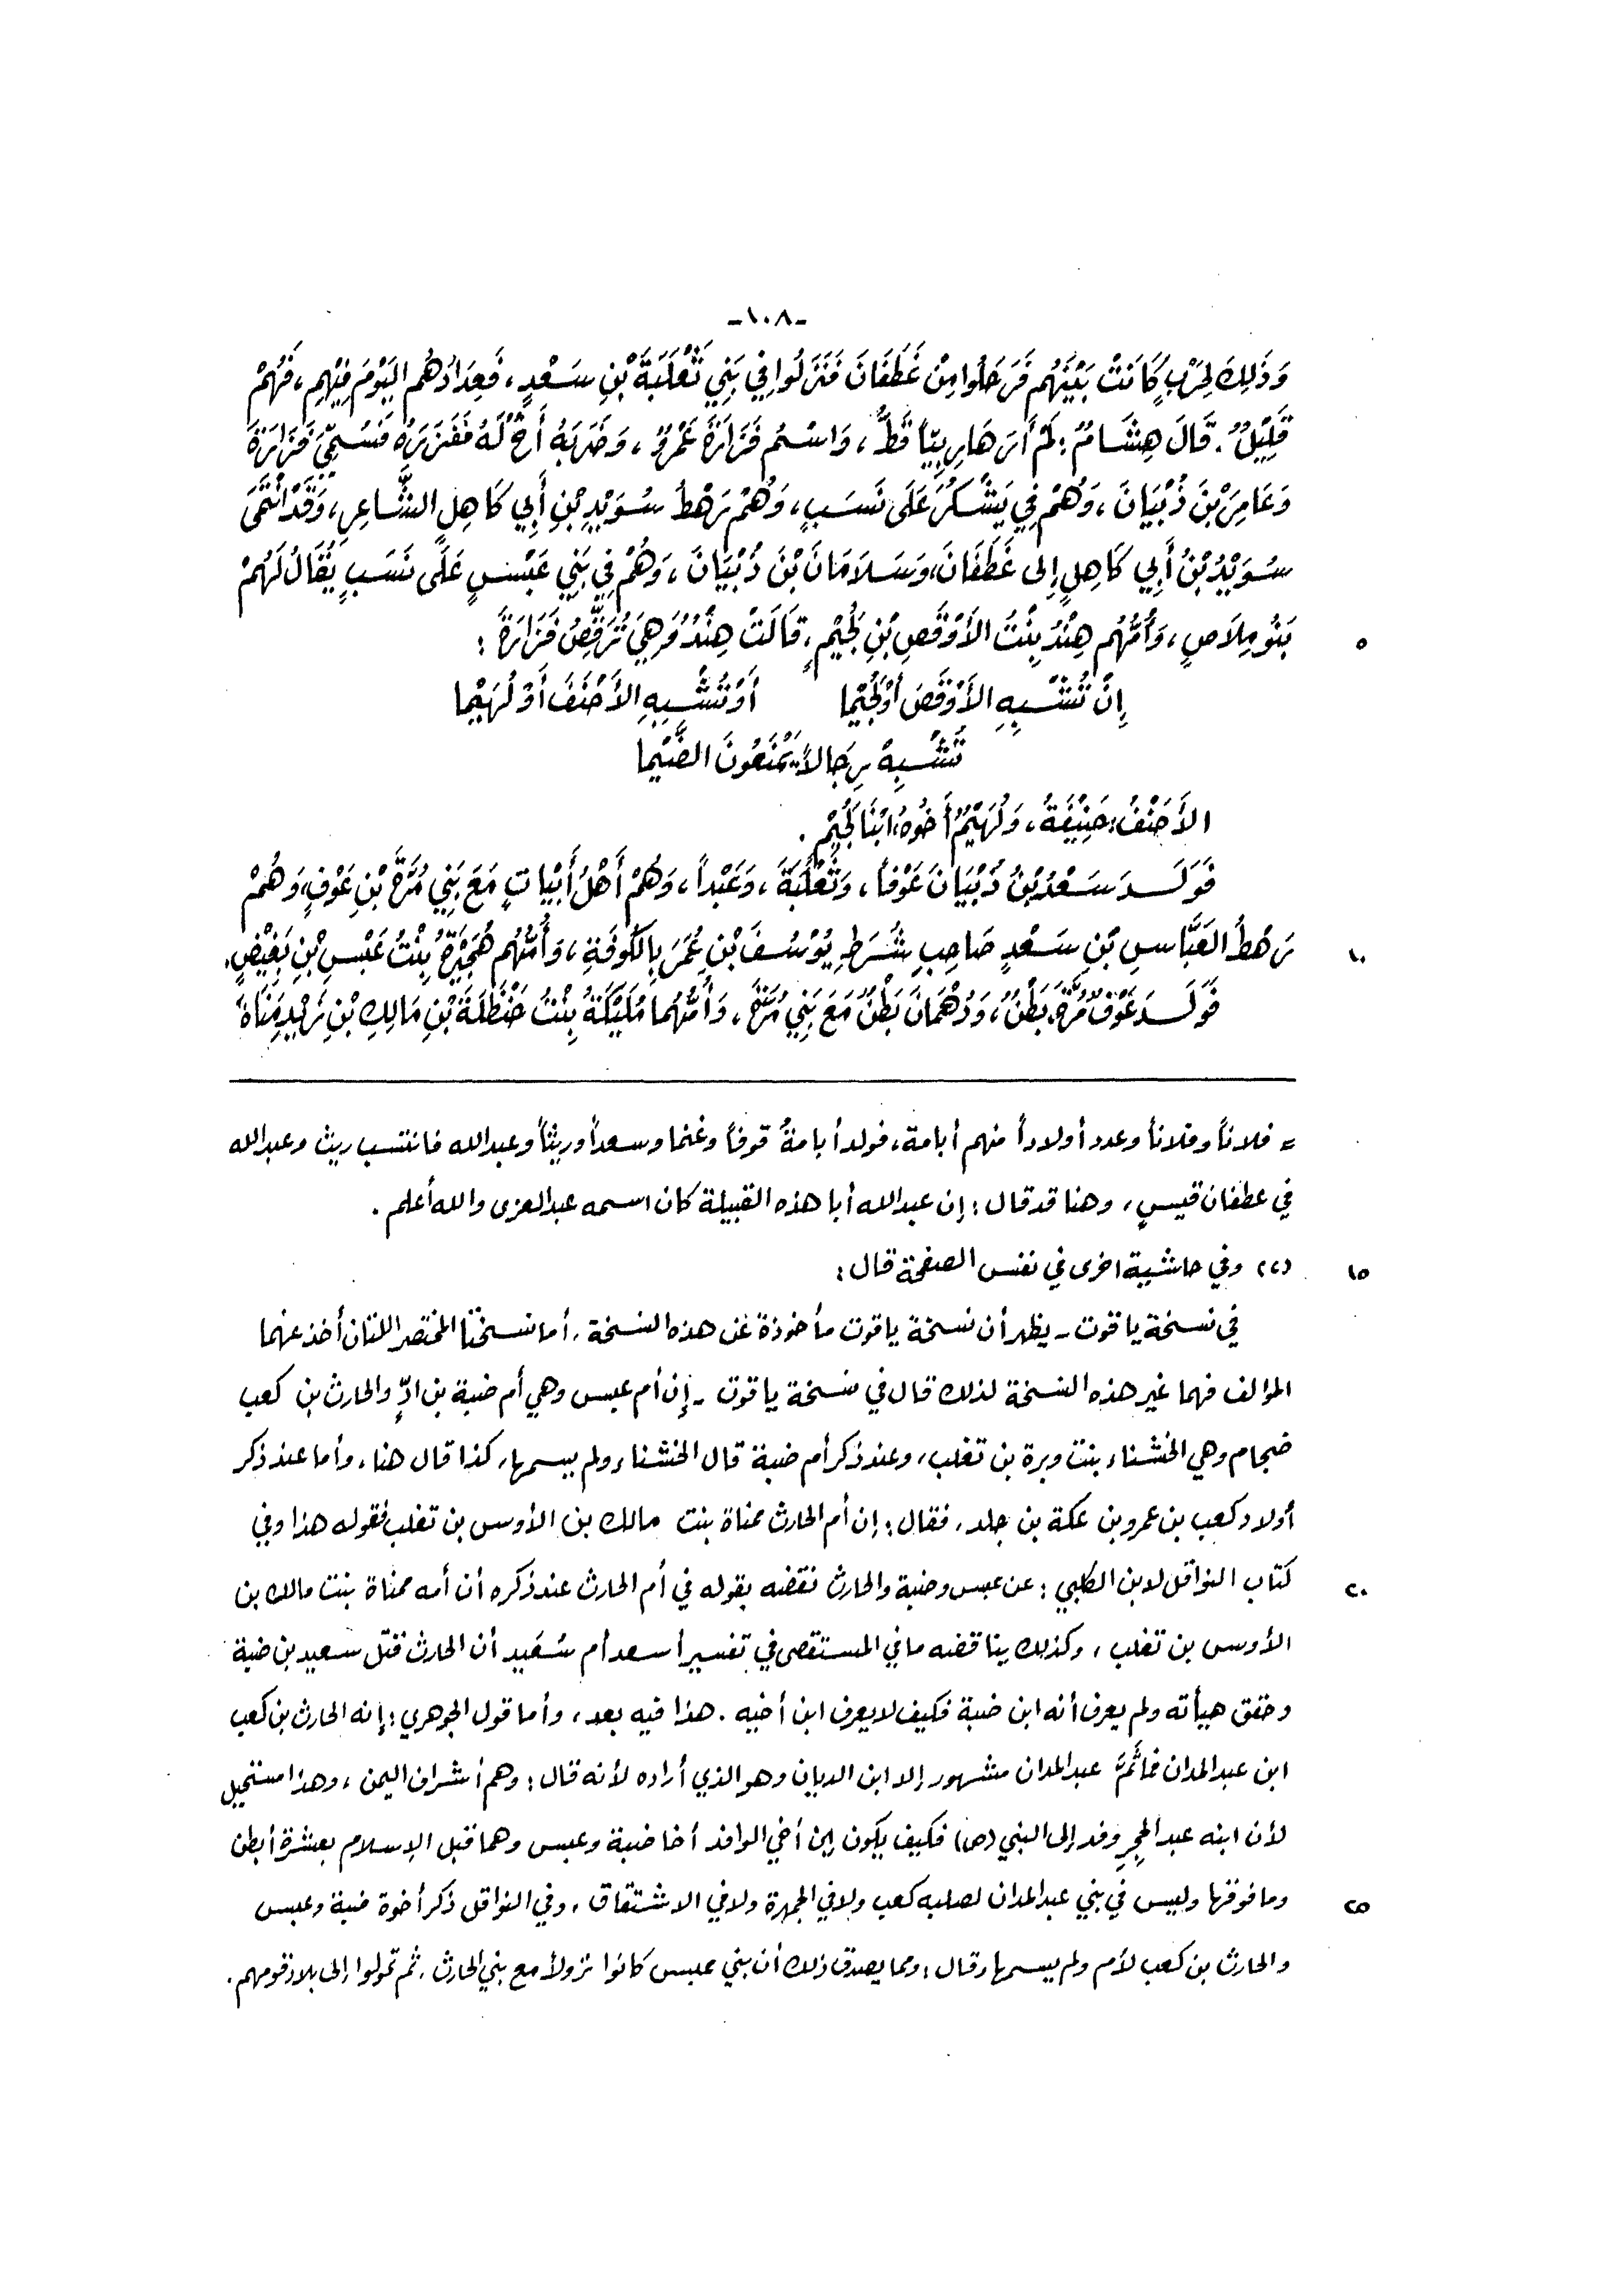 -١٠٨-
وَذَلِكَ لِحَرْبٍ كَانَتْ بَيْنَهُم فَرَحَلُوا مِنْ غَطَفَانَ فَنَزَلُوا فِي بَنِي ثَعْلَبَةَ بْنِ سَعْدٍ، فَعِدَادُهُم اليَوْمَ فِيْهِم، فَهُمْ
قَلِيْلٌ. قَالَ هِشَامٌ: لَمْ أَرَ هَارِبِيّاً قَطُّ، وَاسْمُ فَزَارَةَ عَمْرٌو، وَضَرَبَهُ أَخٌ لَهُ فَفَزَرَهُ فَسُمِّيَ فَزَارَةَ
وَعَامِرَ بْنَ ذُبْيَانَ، وَهُمْ فِي يَشْكُرَ عَلَى نَسَبٍ، وَهُمْ رَهْطُ سُوَيْدِ بْنِ أَبِي كَاهِلٍ الشَّاعِرِ، وَقَدْ انْتَمَى
سُوَيْدُ بْنُ أَبِي كَاهِلٍ إِلى غَطَفَانَ، وَسَلَامَانَ بْنَ ذُبْيَانَ، وَهُمْ فِي بَنِي عَبْسٍ عَلَى نَسَبٍ يُقَالُ لَهُمْ
بَنُو مِلَاصٍ، وَأُمُّهُم هِنْدُ بِنْتُ الأَوْقَصِ بْنِ لُجَيْمٍ، قَالَتْ هِنْدُ وَهِيَ تُرَقِّصُ فَزَارَةَ: ٥
إِنْ تُشْبِهِ الأَوْقَصَ أَوْ لُجَيْما أَوْ تُشْبِهِ الأَحْنَفَ أَوْ لُهَيْما
تُشْبِهْ رِجَالاً يَمْنَعُونَ الضَّيْما
الأَحْنَفُ: حَنِيْفَةُ، وَلُهَيْمٌ أَخُوهُ، ابْنَا لُجَيْمٍ.
فَوَلَدَ سَعْدُ بْنُ ذُبْيَانَ عَوْفاً، وَثَعْلَبَةَ، وَعَبْداً، وَهُمْ أَهْلُ أَبْيَاتٍ مَعَ بَنِي مُرَّةَ بْنِ عَوْفٍ، وَهُمْ
رَهْطُ العَبَّاسِ بْنِ سَعْدٍ صَاحِبِ شُرَطِ يُوْسُفَ بْنِ عُمَرَ بِالكُوفَةِ، وَأُمُّهُم هُجَيْرَةُ بِنْتُ عَبْسِ بْنِ بَغِيْضٍ. ١٠
فَوَلَدَ عَوْفٌ مُرَّةَ بَطْنٌ، وَدُهْمَانَ بَطْنٌ مَعَ بَنِي مُرَّةَ، وَأُمُّهُما مُلَيْكَةُ بِنْتُ حَنْظَلَةَ بْنِ مَالِكِ بْنِ زَيْدِ مَنَاةَ
= فلاناً وفلاناً وعدد أولاداً منهم أبامة، فولد أبامةُ قوفاً وغنما وسعداً وريثاً وعبدالله فانتسب ريث وعبدالله
في غطفان قيسٍ، وهنا قد قال: إن عبدالله أبا هذه القبيلة كان اسمه عبدالعزى والله أعلم.
(٢) وفي حاشية اخرى في نفس الصفحة قال: ١٥
في نسخة ياقوت - يظهر أن نسخة ياقوت مأخوذة عن هذه النسخة، أما نسختا المختصر اللتان أخذ عنهما
المؤلف فهما غير هذه النسخة لذلك قال في نسخة ياقوت - إن أم عبس وهي أم ضبة بن ادٍّ والحارث بن كعب
ضجام وهي الخشناء بنت وبرة بن تغلب، وعند ذكر أم ضبة قال الخشناء ولم يسمها، كذا قال هنا، وأما عند ذكر
أولاد كعب بن عمرو بن عكة بن جلد، فقال: إن أم الحارث مناة بنت مالك بن الأوس بن تغلب فقوله هذا وفي
كتاب النواقل لابن الكلبي: عن عبس وضبة والحارث نقضه بقوله في أم الحارث عند ذكره أن أمه مناة بنت مالك بن ٢٠
الأوس بن تغلب، وكذلك يناقضه ما في المستقصى في تفسير أسعد أم سُعَيد أن الحارث قتل سعيد بن ضبة
وحقق هيأته ولم يعرف أنه ابن ضبة فكيف لا يعرف ابن أخيه. هذا فيه بعد، وأما قول الجوهري: إنه الحارث بن كعب
ابن عبد المدان فما ثَمَّ عبد المدان مشهور إلا ابن الديان وهو الذي أراده لأنه قال: وهم أشراف اليمن، وهذا مستحيل
لأن ابنه عبد الحِجِرِ وفد إلى النبي (ص) فكيف يكون ابن أخي الوافد أخا ضبة وعبس وهما قبل الإسلام بعشرة أبطن
وما فوقها وليس في بني عبد المدان لصلبه كعب ولا في الجمهرة ولا في الاشتقاق، وفي النواقل ذكر أخوة ضبة وعبس ٢٥
والحارث بن كعب لأم ولم يسمها وقال: ومما يصدق ذلك أن بني عبس كانوا نزولاً مع بني الحارث، ثم تحولوا إلى بلاد قومهم.